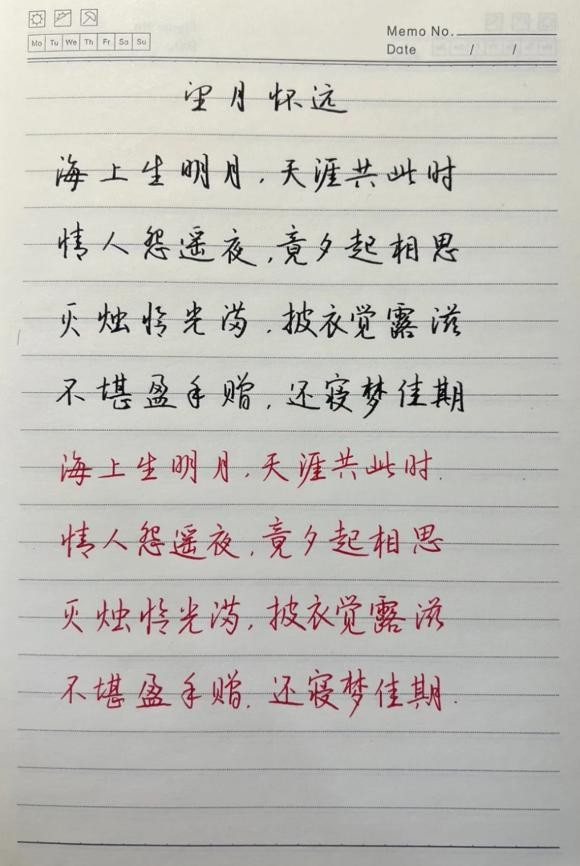 Mo Tu We Th Fr Sa Su
Memo No.
Date / /
望月怀远
海上生明月，天涯共此时
情人怨遥夜，竟夕起相思
灭烛怜光满，披衣觉露滋
不堪盈手赠，还寝梦佳期
海上生明月，天涯共此时.
情人怨遥夜，竟夕起相思
灭烛怜光满，披衣觉露滋
不堪盈手赠，还寝梦佳期.